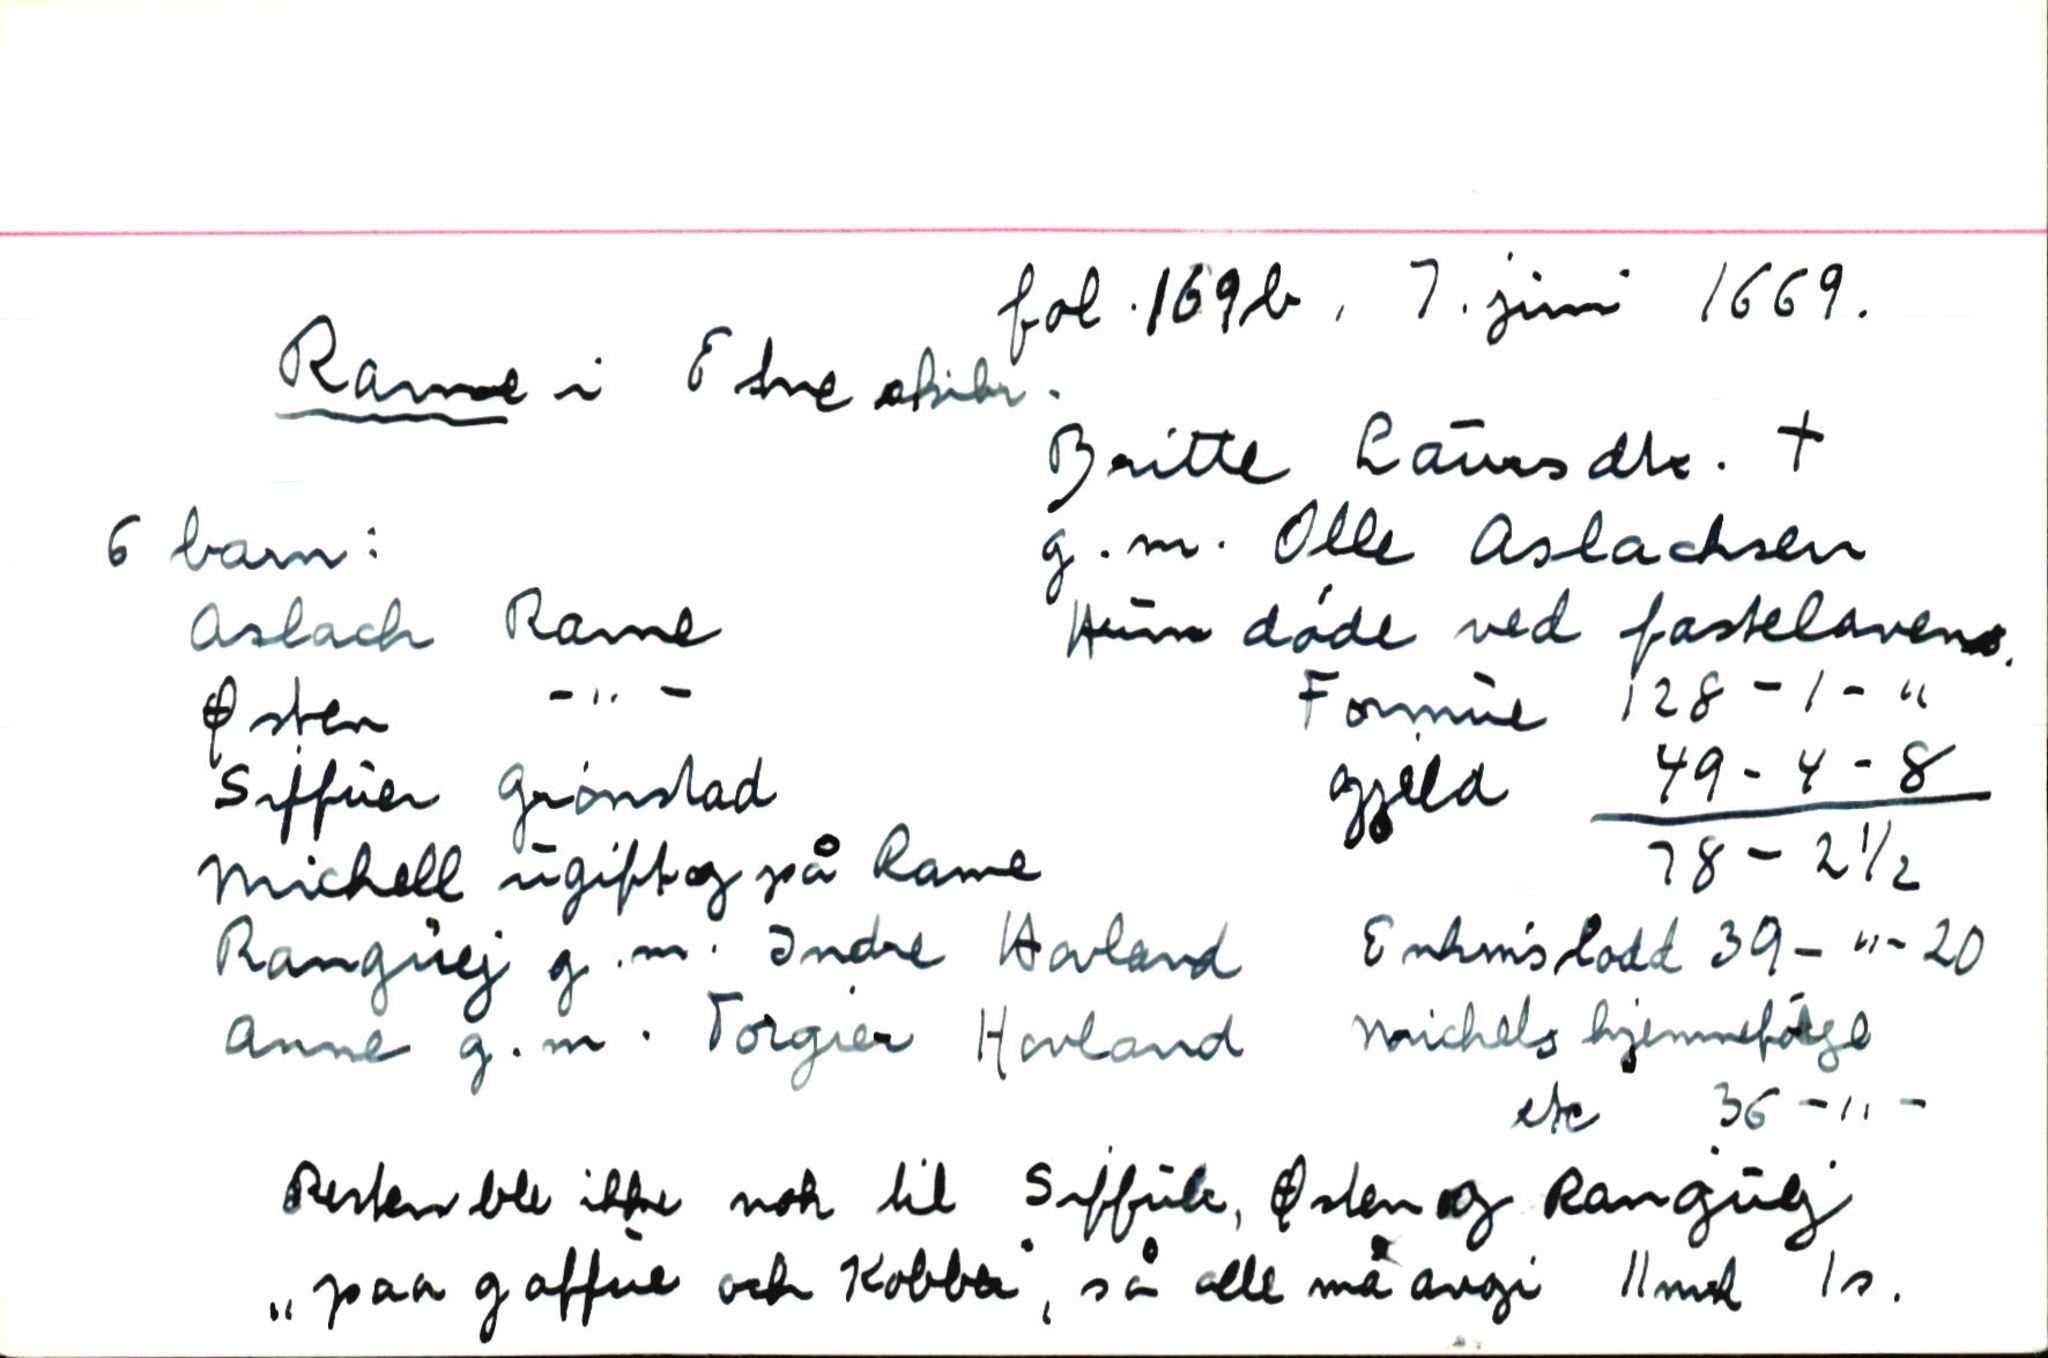 fol. 169b, 7. juni 1669.
Rame i Etne skibr.
Britte Laursdtr. +
6 barn:
g.m. Olle Aslachsen
Aslach Rame
Hun døde ved fastelavens.
Østen -"-
Formue 128-1-"
Siffuer Grønstad
gjeld 49-4-8
Michell ugift og på Rame
78-2 1/2
Ranguej g.m. Indre Havland
Enkm's lodd 39-"-20
Anne g.m. Torgier Havland
Michels hjemmefølge
etc 36-"-
Resten ble ikke nok til Siffuer, Østen og Ranguej
"paa gaffue och Kobber", så alle må avgi 11mk 1s.